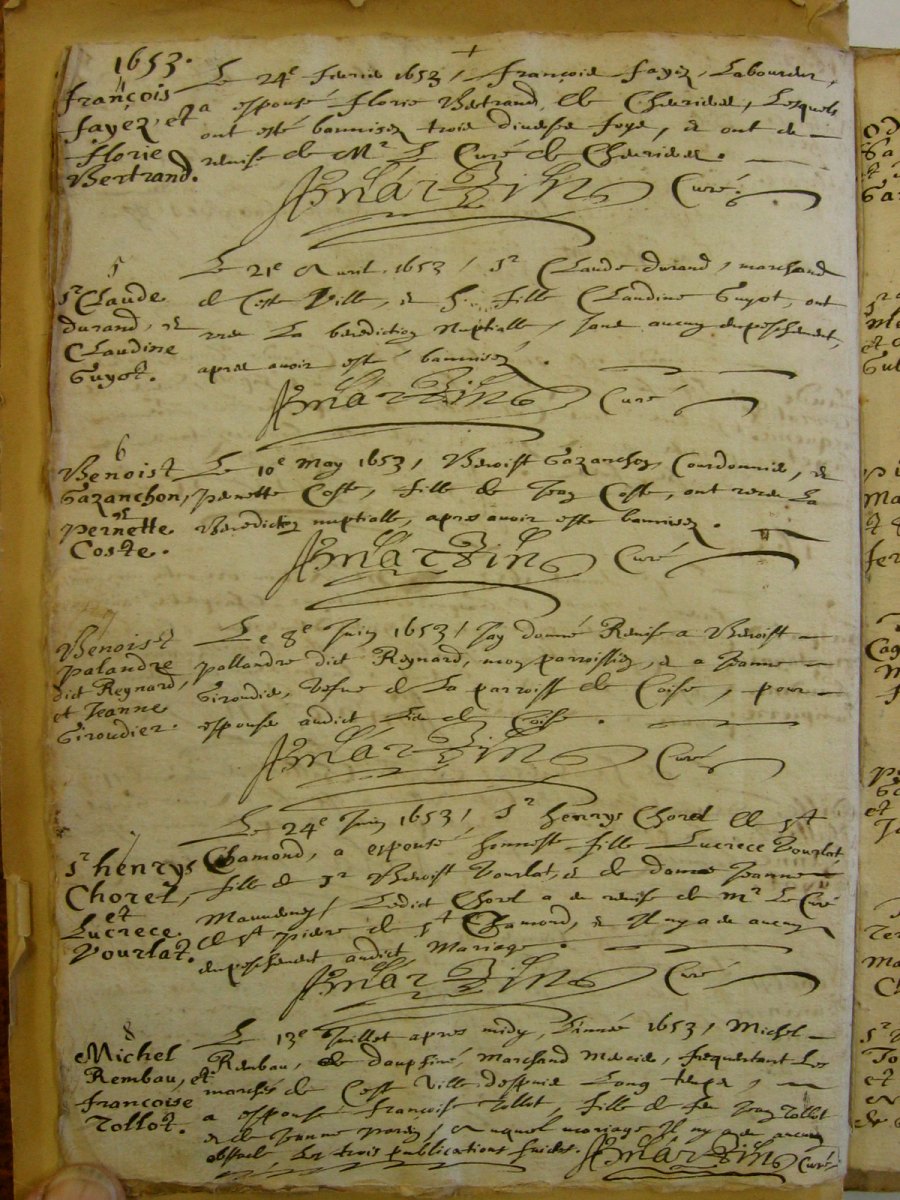 1653.
françois
fayez, et
florie
Bertrand.
Le 24e febvrier 1653, françois fayez, Laboureur,
a espousé florie Bertrand, de Chevrieres, Lesquels
ont esté bannisez trois diverses foys, et ont de
remise de Mr Le Curé de Chevrieres.
Martin Curé.
5
Sr Claude
durand, et
Claudine
Guyot.
Le 21e Avril 1653, Sr Claude durand, marchand
de Ceste Ville, et fille Claudine Guyot, ont
receu La benediction Nuptialle, sans aucung empeschement,
apres avoir esté bannisez.
Martin Curé
6
Benoist
Gazanchon,
et
Pernette
Coste.
Le 10e May 1653, Benoist Gazanchon, Courdonnier, et
pernette Coste, fille de Jean Coste, ont receu La
Benediction nuptialle, apres avoir esté bannisez.
Martin Curé
Benoist
Palandre
dict Reynard,
et Jeanne
Giroudier.
Le 8e Juin 1653, J'ay donné Remise a Benoist
pallandre dict Reynard, mon parroissien, et a Jeanne
Giroudier, vefve de La parroisse de Coise, pour
espouser audict Lieu de Coise.
Martin Curé
7
Sr henrys
Choret,
et
Lucrece
Vourlat.
Le 24e Juin 1653, Sr henrys Choret de St
Chamond, a espousé honneste fille Lucrece Vourlat
fille de Sr Benoist Vourlat, et de dame Jeanne
Ledict Choret a eu remise de Mr Le Curé
de St pierre de St Chamond, et Il ny a eu aucung
empeschement audict Mariage.
Martin Curé
8
Michel
Rembau, et
françoise
Tollot.
Le 13e Juillet apres midy, L'année 1653, Michel
Rembau, de dauphiné, Marchand Mercier, frequentant Les
marchés de Ceste Ville despuis Long temps,
a espousé françoise Tollot, fille de feu Jean Tollot
et de Jeanne Auquel mariage Il ny a eu aucung
obstacle Les trois publications faictes. Martin Curé